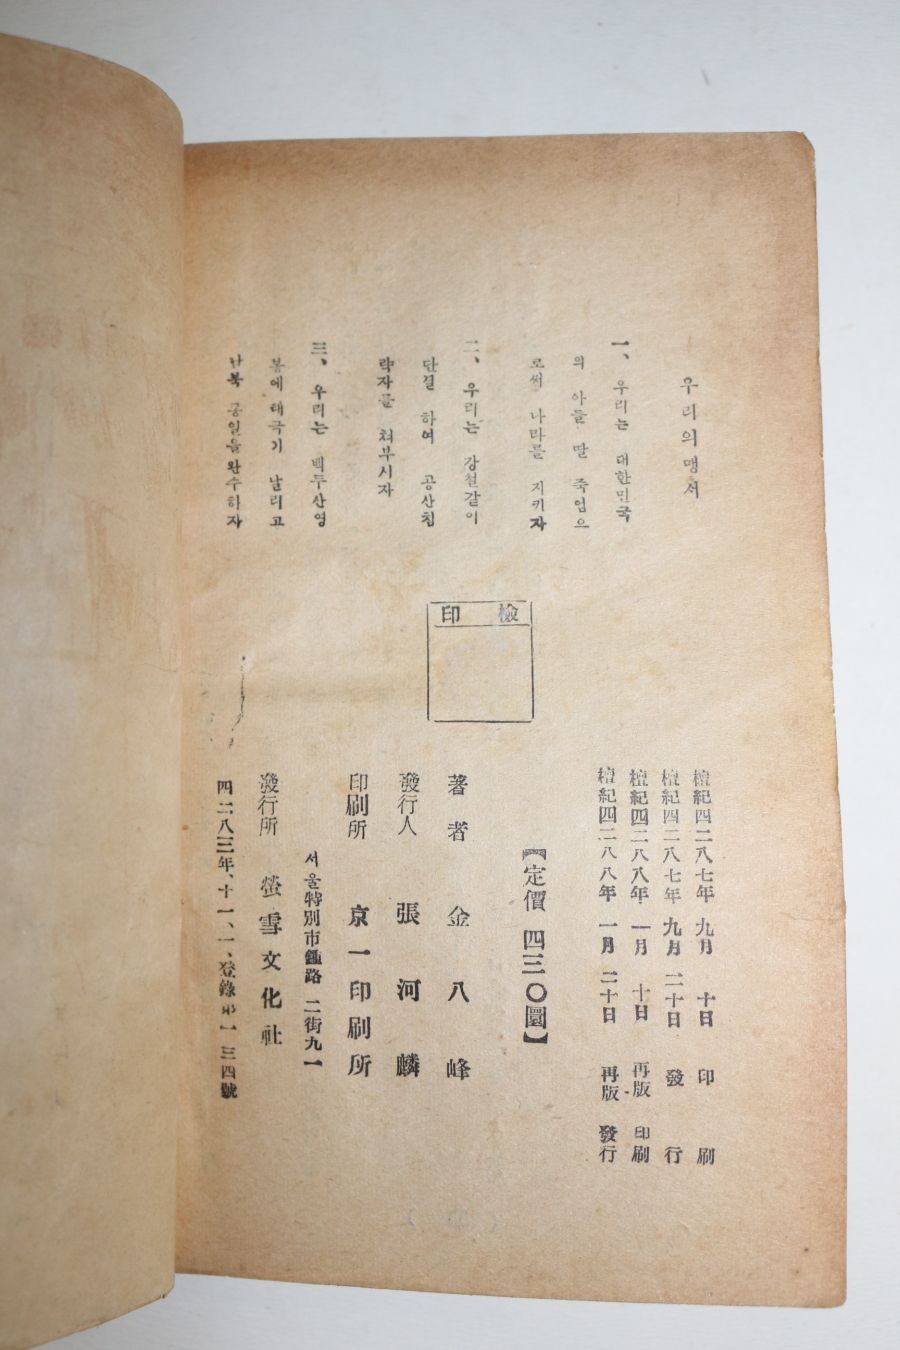 우리의 맹서
一、우리는 대한민국
의 아들 딸 죽엄으
로써 나라를 지키자
二、우리는 강철같이
단결 하여 공산침
략자를 쳐부시자
三、우리는 백두산영
봉에 태극기 날리고
남북 통일을 완수하자
檢印
檀紀四二八七年 九月 十日 印刷
檀紀四二八七年 九月 二十日 發行
檀紀四二八八年 一月 十日 再版 印刷
檀紀四二八八年 一月 二十日 再版 發行
【定價 四三〇圜】
著者 金八峰
發行人 張河麟
印刷所 京一印刷所
서울特別市鍾路 二街九一
發行所 螢雪文化社
四二八三年、十一、一、登錄第一三四號